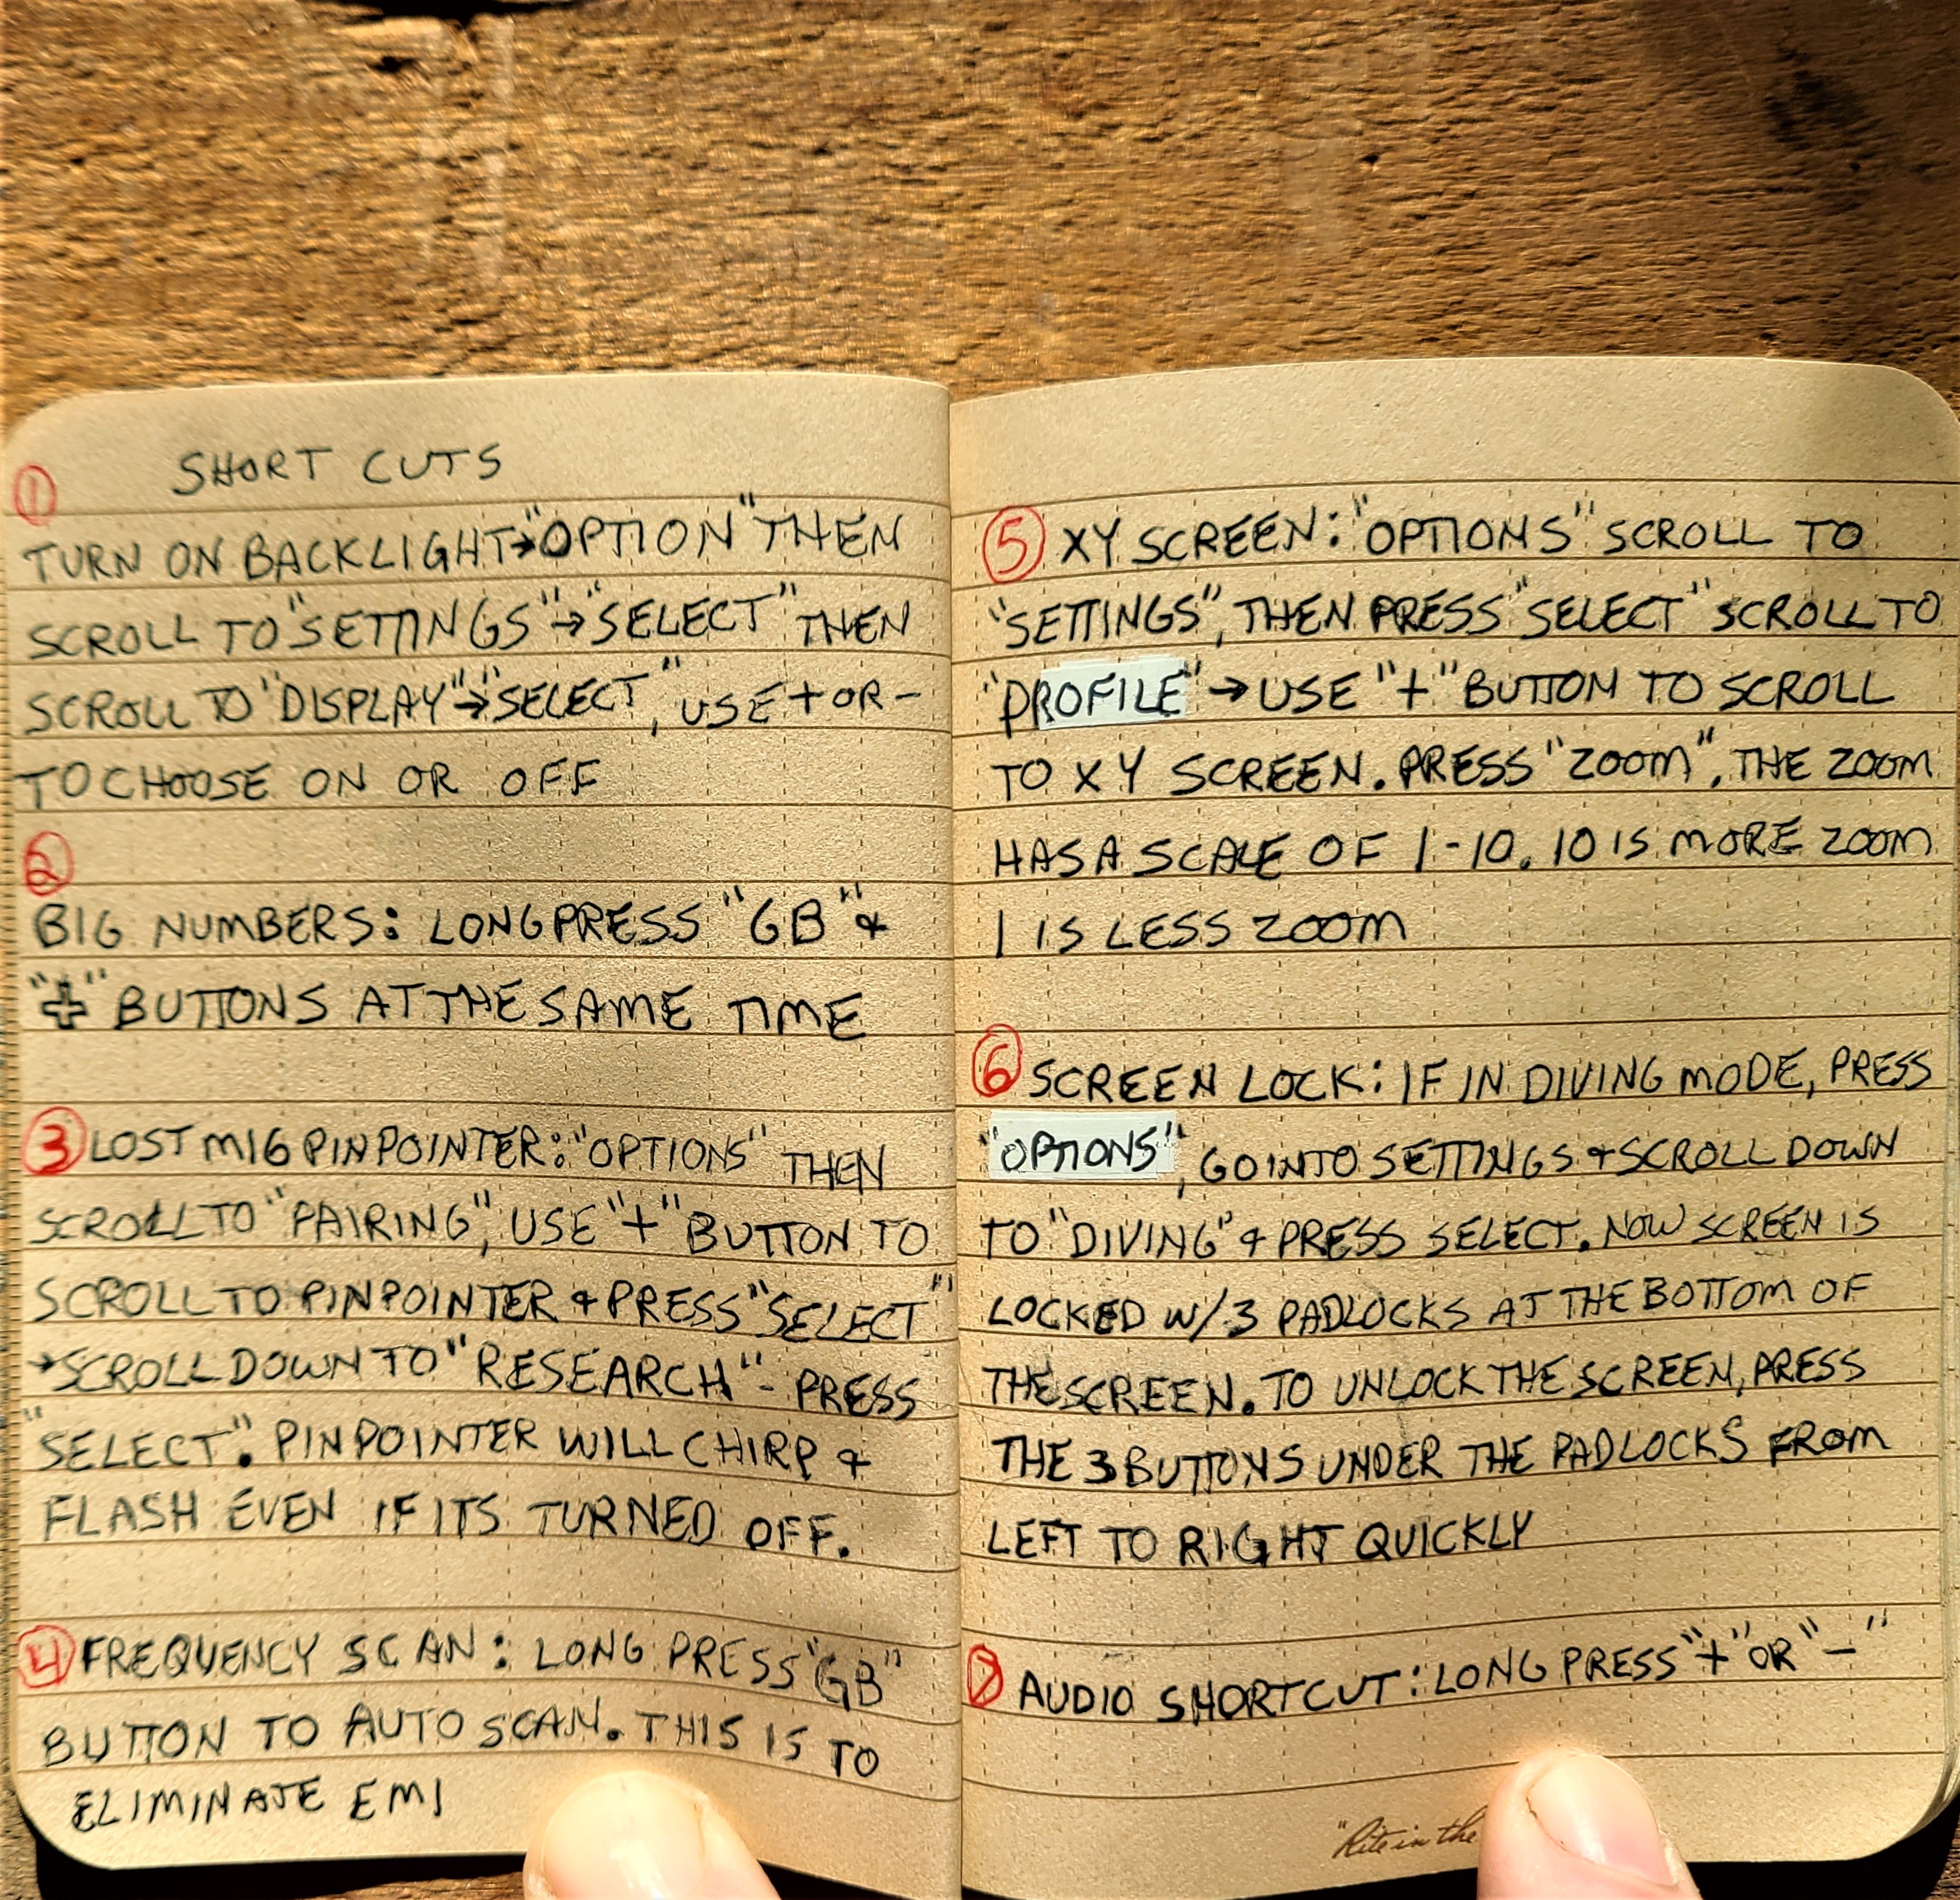 SHORT CUTS
①
TURN ON BACKLIGHT→"OPTION" THEN
SCROLL TO "SETTINGS"→"SELECT" THEN
SCROLL TO "DISPLAY"→"SELECT", USE + OR -
TO CHOOSE ON OR OFF
②
BIG NUMBERS: LONG PRESS "GB" &
"+" BUTTONS AT THE SAME TIME
③ LOST MI6 PINPOINTER: "OPTIONS" THEN
SCROLL TO "PAIRING", USE "+" BUTTON TO
SCROLL TO PINPOINTER & PRESS "SELECT"
→SCROLL DOWN TO "RESEARCH" - PRESS
"SELECT". PINPOINTER WILL CHIRP &
FLASH EVEN IF ITS TURNED OFF.
④ FREQUENCY SCAN: LONG PRESS "GB"
BUTTON TO AUTO SCAN. THIS IS TO
ELIMINATE EMI
⑤ XY SCREEN: "OPTIONS" SCROLL TO
"SETTINGS", THEN PRESS "SELECT" SCROLL TO
"PROFILE" → USE "+" BUTTON TO SCROLL
TO XY SCREEN. PRESS "ZOOM", THE ZOOM
HAS A SCALE OF 1-10. 10 IS MORE ZOOM
1 IS LESS ZOOM
⑥ SCREEN LOCK: IF IN DIVING MODE, PRESS
"OPTIONS", GO INTO SETTINGS & SCROLL DOWN
TO "DIVING" & PRESS SELECT. NOW SCREEN IS
LOCKED W/3 PADLOCKS AT THE BOTTOM OF
THE SCREEN. TO UNLOCK THE SCREEN, PRESS
THE 3 BUTTONS UNDER THE PADLOCKS FROM
LEFT TO RIGHT QUICKLY
⑦ AUDIO SHORTCUT: LONG PRESS "+" OR "-"
"Rite in the